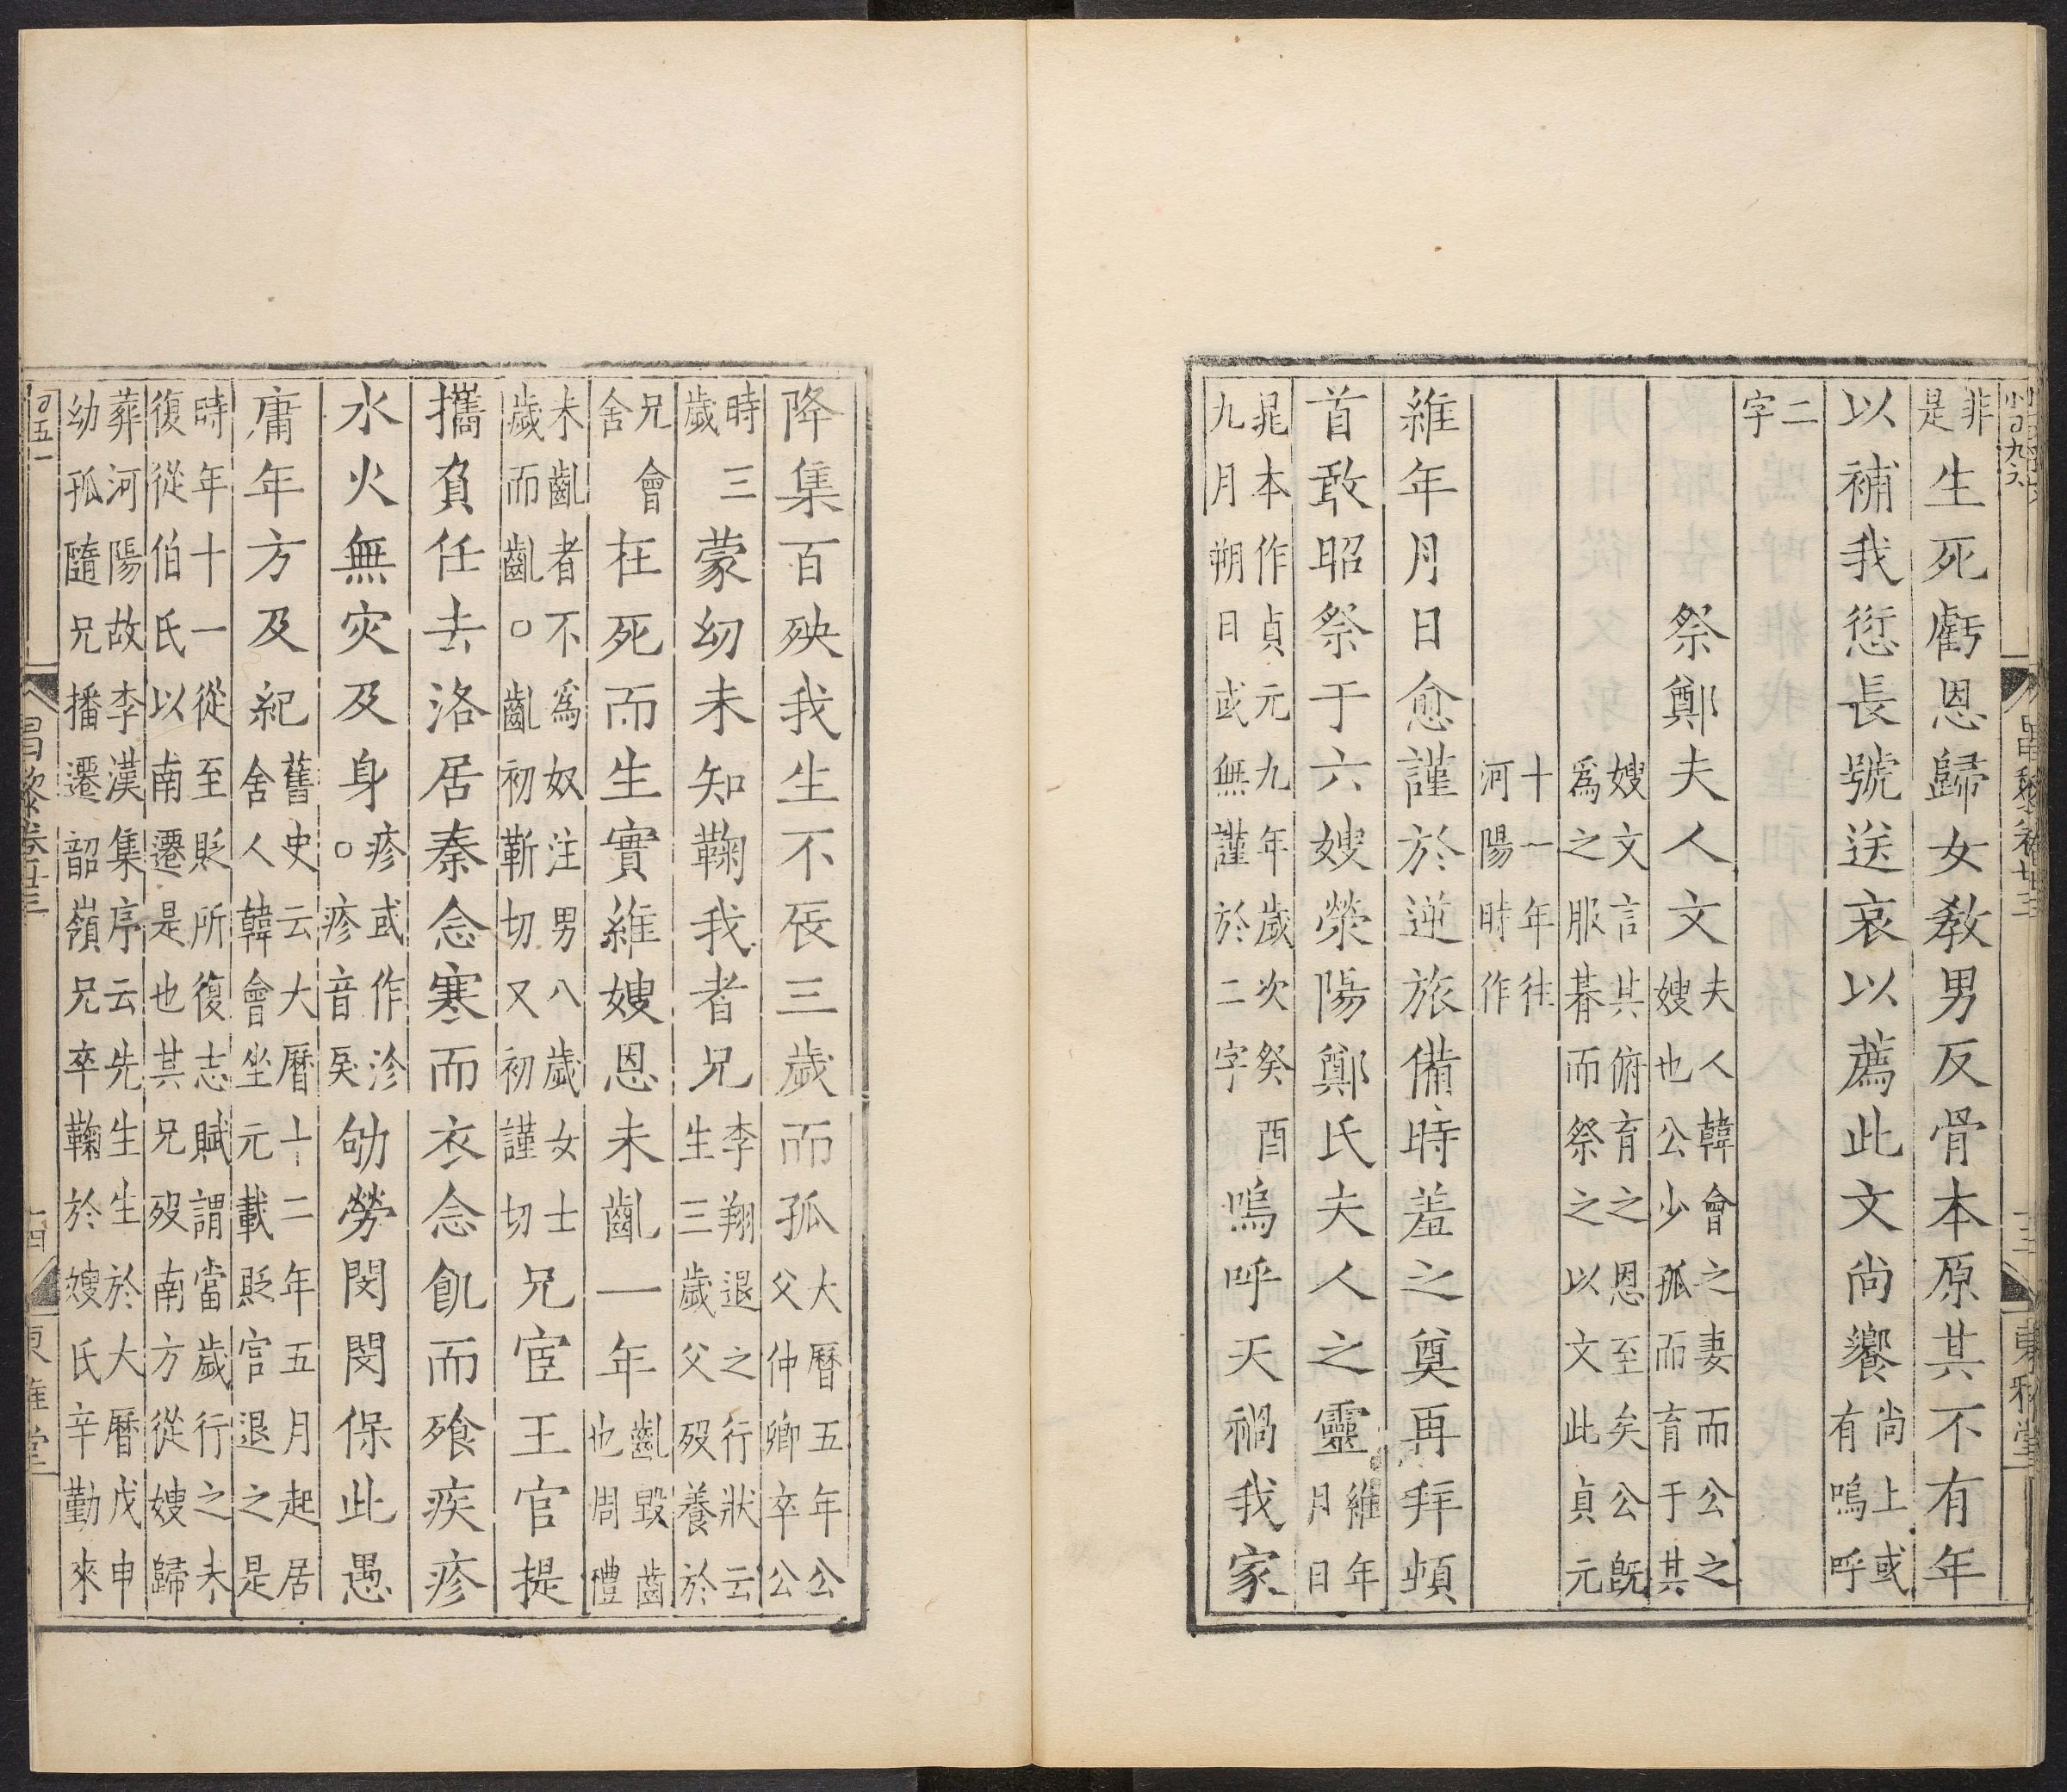 非是生死虧恩歸女教男反骨本原其不有年
以補我愆長號送哀以薦此文尚饗尚上或有嗚呼
二字
祭鄭夫人文夫人韓會之妻而公之嫂也公少孤而育于其
嫂文言其俯育之恩至矣公既爲之服朞而祭之以文此貞元
十一年往河陽時作
維年月日愈謹於逆旅備時羞之奠再拜頓
首敢昭祭于六嫂滎陽鄭氏夫人之靈維年月日
晁本作貞元九年歲次癸酉九月朔日或無謹於二字嗚呼天禍我家
降集百殃我生不辰三歲而孤大曆五年公父仲卿卒公
時三歲蒙幼未知鞠我者兄李翔退之行狀云生三歲父歿養於
兄會舍在死而生實維嫂恩未齓一年齓毀齒也周禮
未齓者不爲奴注男八歲女士歲而齓〇齓初靳切又初謹切兄宦王官提
攜負任去洛居秦念寒而衣念飢而飧疾疹
水火無灾及身疹或作沴〇疹音戾劬勞閔閔保此愚
庸年方及紀舊史云大曆十二年五月起居舍人韓會坐元載貶官退之是
時年十一從至貶所復志賦謂當歲行之未復從伯氏以南遷是也其兄歿南方從嫂歸
葬河陽故李漢集序云先生生於大曆戊申幼孤隨兄播遷韶嶺兄卒鞠於嫂氏辛勤來
昌黎卷廿三
十三
東雅堂
昌黎卷廿三
十四
東雅堂